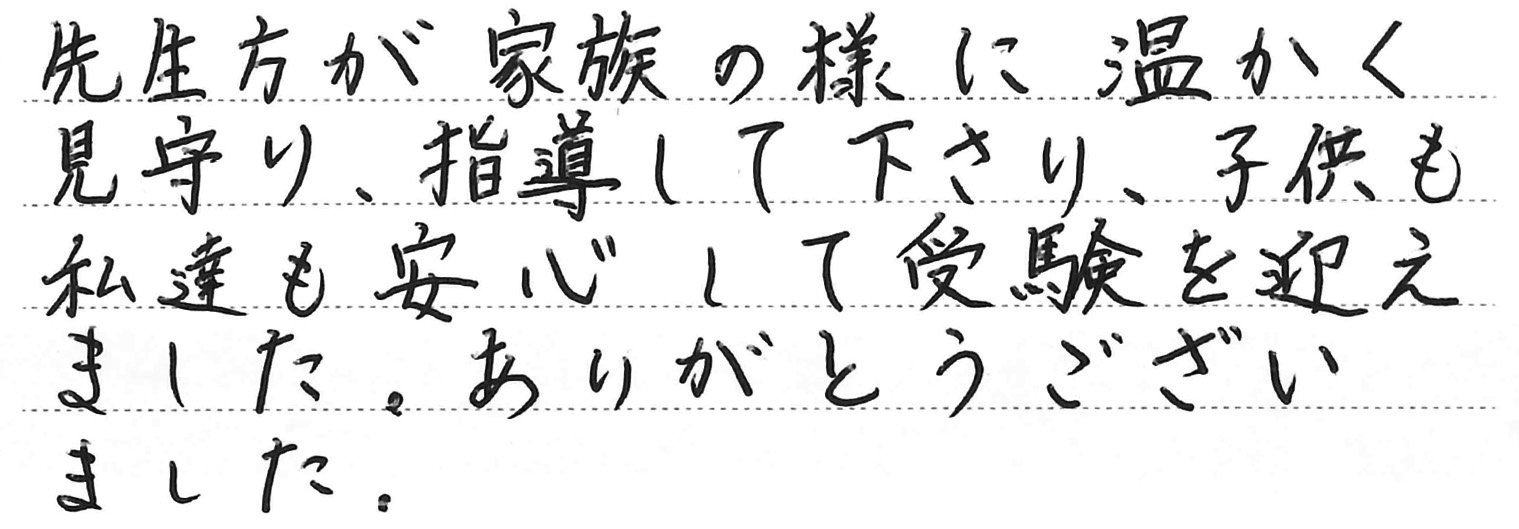 先生方が家族の様に温かく
見守り、指導して下さり、子供も
私達も安心して受験を迎え
ました。ありがとうござい
ました。